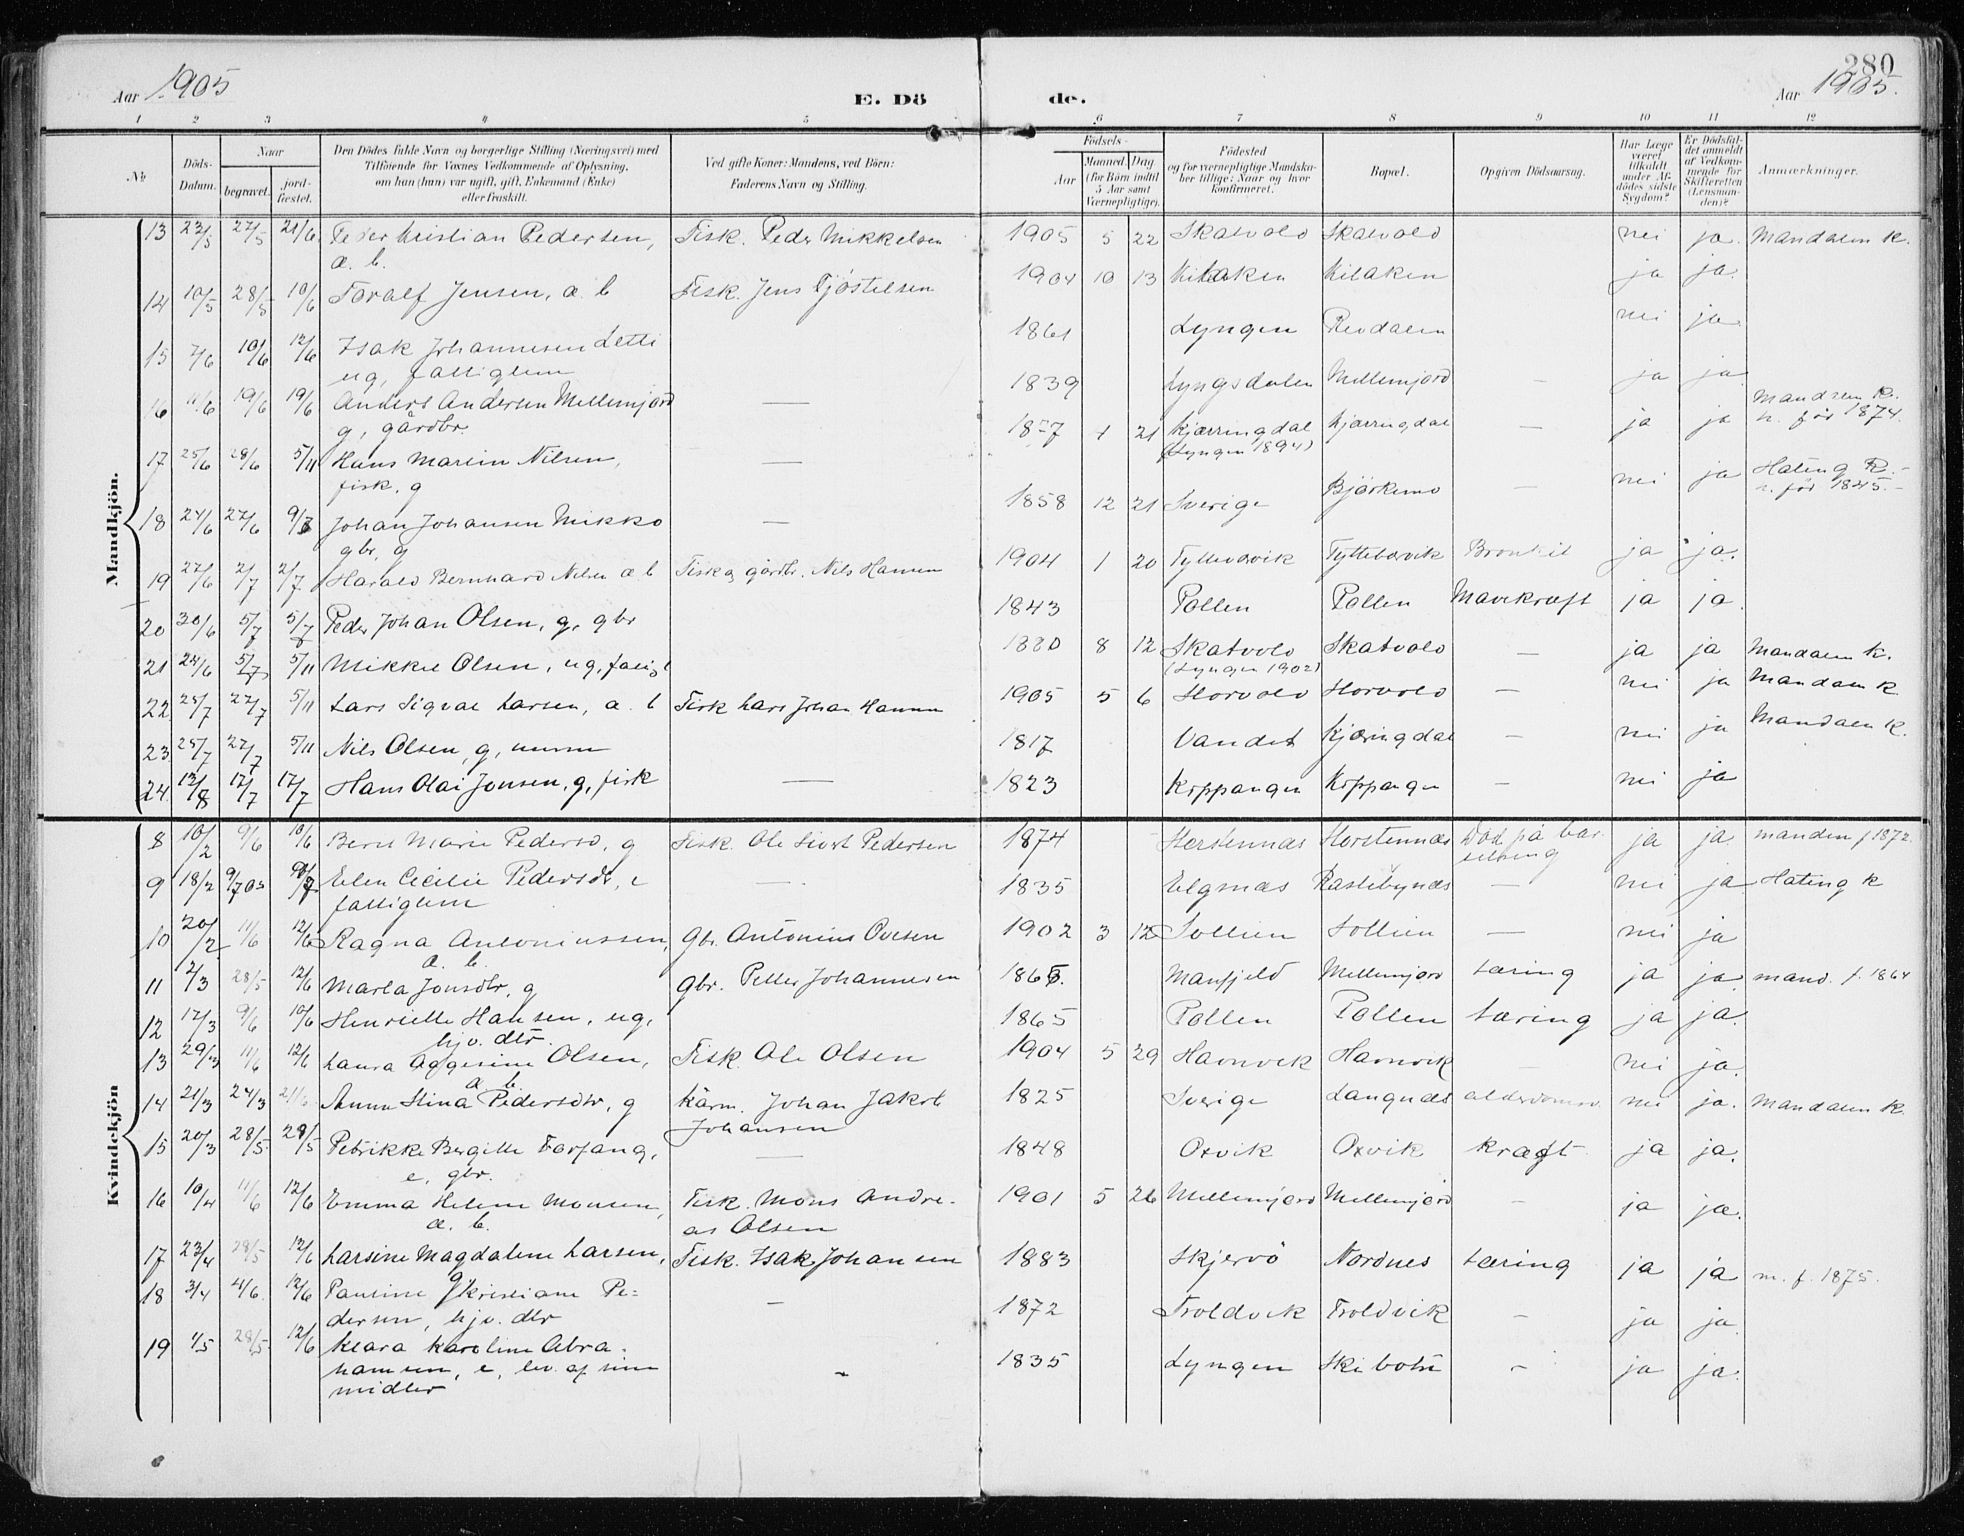 280
Aar 1905
E. Dö
de.
Aar 1905.
1 2 3 4 5 6 7 8 9 10 11 12
No
Döds-Datum.
Naar
begravet.
jord-fæstet.
Den Dödes fulde Navn og borgerlige Stilling (Næringsvei) med
Tilföiende for Voxnes Vedkommende af Oplysning,
om han (hun) var ugift, gift, Enkemand (Enke)
eller fraskilt.
Ved gifte Koner: Mandens, ved Börn:
Faderens Navn og Stilling.
Födsels-
Aar
Maaned. Dag
(for Börn indtil
5 Aar samt
Værnepligtige).
Födested
og for værnepligtige Mandska-
ber tillige: Naar og hvor
konfirmeret.
Bopæl.
Opgiven Dödsaarsag.
Har Læge
været
tilkaldt
under Af-
dödes sidste
Sygdom?
Er Dödsfal-
det anmeldt
af Vedkom-
mende for
Skifteretten
(Lensman-
den)?
Anmærkninger.
Mandkjön.
13 22/5 27/5 21/6 Peder Kristian Pedersen, Fisk. Peder Mikkelsen 1905 5 22 Skatvold Skatvold nei ja. Mandalen k.
a. b.
14 10/5 28/5 10/6 Toralf Jensen, a. b Fisk. Jens Tjöstelsen 1904 10 13 Kilaken ja ja.
15 7/6 10/6 12/6 Isak Johannesen Letti 1861 Lyngen nei ja.
ug, fattiglem
16 11/6 19/6 19/6 Anders Andersen Mellemjord — 1839 Lyngsdalen Mellemjord — ja ja.
g, gårdbr.
17 25/6 28/6 5/11 Hans Martin Nilsen, — 1857 1 21 Kjærringdal Kjærringdal — ja ja Mandalen K.
n. før 1874.
(Lyngen 1894)
fisk, g
18 24/6 27/6 Johan Johansen Mikko — 1858 12 21 Sverige Bjørkemo nei ja Hateng K.
n. før 1845.
gbr, g
19 27/6 2/7 2/7 Harald Bernhard Nilsen a b Fisk og gårdbr. Nils Hansen 1904 1 20 Tyttebærvik Tyttebærvik Bronkit ja ja.
20 30/6 5/7 5/7 Peder Johan Olsen, g, gbr 1843 Pollen Pollen Mavekræft ja ja.
21 24/6 5/7 5/11 Mikkel Olsen, ug, 1880 8 12 Skatvold Skatvold — ja ja Mandalen k.
(Lyngen 1902)
22 25/7 27/7 5/11 Lars Sigval Larsen, a. b Fisk Lars Johan Hansen 1905 5 6 Storvold Storvold — nei ja Mandalen k
23 25/7 27/7 5/11 Nils Olsen, g, 1817 Vandet Kjæringdal — nei ja Mandalen k.
24 17/7 17/7 Hans Olai Jonsen, g, fisk — 1823 Koppangen Koppangen — nei ja
Kvindekjön
8 10/2 9/6 10/6 Berit Marie Pedersd, g Fisk. Ole Sivert Pedersen 1874 Storstennæs Død på bar- ja ja. manden f 1872.
selseng
9 18/2 9/7 05 Elen Cecilie Pedersdtr, e — 1835 Elgnæs Rastebynæs — nei ja Hateng k
fattiglem
10 20/2 11/6 12/6 Ragna Antoniussen, gbr. Antonius Ovesen 1902 3 12 Sollien Sollien — nei ja
a. b.
11 2/3 28/5 12/6 Marta Jonsdtr, g gbr. Petter Johannesen Manfjeld Mellemjord tæring ja ja. mand. f. 1864
12 17/3 9/6 10/6 Henriette Hansen, ug, 1865 Pollen Pollen tæring ja ja.
hjv. dtr.
13 29/3 11/6 12/6 Laura Aggesine Olsen, Fisk. Ole Olsen 1904 5 29 Havnvik Havnvik nei ja.
a. b.
14 21/3 24/3 21/6 Anna Stina Pedersdtr, g Kårm. Johan Jakob 1825 Sverige Langnæs alderdomssv. nei ja. Mandalen k.
Johansen
15 20/3 28/5 28/5 Petrikke Bergitte Forfang, — 1848 Oxvik Oxvik kræft ja ja.
e, gbr.
16 10/4 11/6 12/6 Emma Helene Monsen, Fisk. Mons Andre- 1901 5 26 Mellemjord Mellemjord — ja ja.
a. b. as Olsen
17 23/4 28/5 12/6 Larsine Magdalene Larsen, Fisk. Isak Johansen 1883 Skjervö Nordnes tæring ja ja m. f. 1875.
g
18 3/4 4/6. 12/6 Pauline Kristiane Pe- — 1872 Troldvik Troldvik — ja ja.
dersen, hjv. dtr
19 1/5 28/5 12/6 Klara Karoline Abra- 1835 Lyngen Skibotn — ja ja.
hamsen, e, lev. af sine —
midler